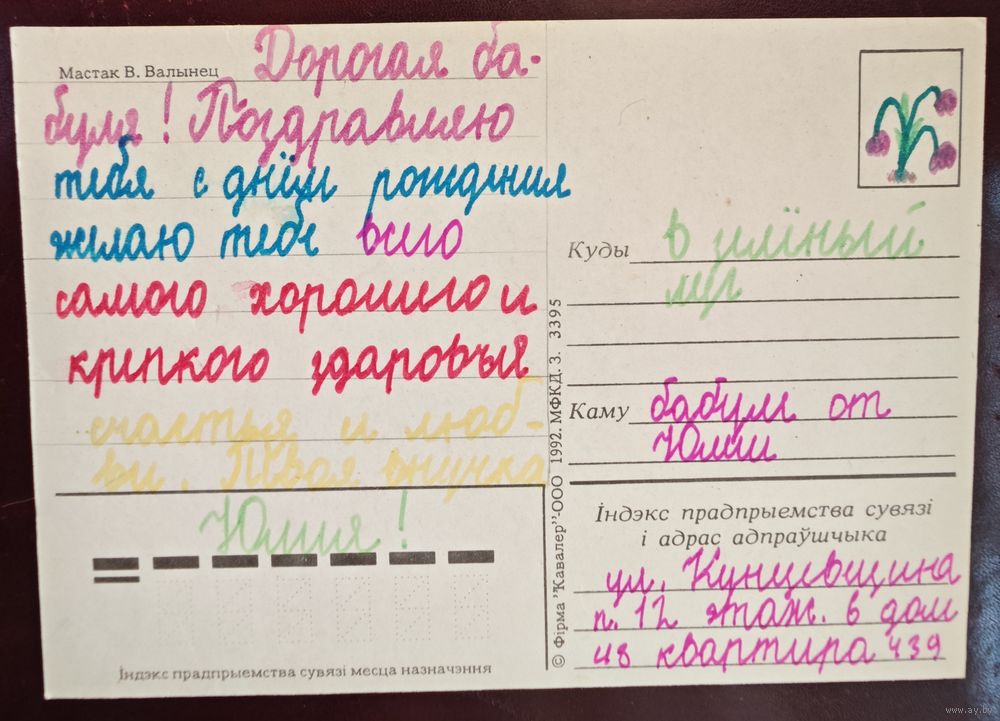 Мастак В. Валынец
Дорогая ба-
буля! Поздравляю
тебя с днём рождения
желаю тебе всего
самого хорошего и
крепкого здаровья
счастья и люб-
ви. Твоя внучка
Юлия!
Індэкс прадпрыемства сувязі месца назначэння
© Фірма "Кавалер"-ООО 1992. МФКД. З. 3395
Куды в
луг
Каму бабули от
Юлии
Індэкс прадпрыемства сувязі
і адрас адпраўшчыка
ул. Кунцевщина
п. 12 этаж. 6 дом
48 квартира 439
www.ay.by